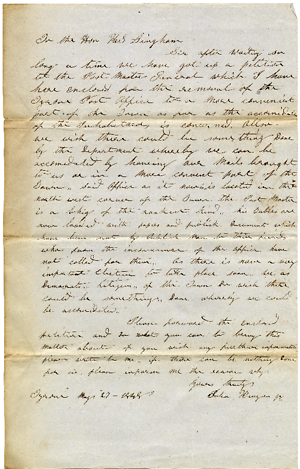 To the Hon Kid Dingham
Sir after Waiting so
long a time we have got up a petition
to the Post Master General which I have
here enclosed for the removal of the
Tyrone Post Office to a more convenient
part of the Town as far as the
of the Inhabitants is concerned. Allow
we wish there could be something Done
by the Department whereby we can be
accomodated by having our Mails brought
to us or in a more convent part of the
Town. Said Office as it now is is located in the
north west corner of the Town, the Post Master
is a Whig of the rankest kind, his tables are
now loaded with papers and publick documents which
have been
who from the inconvenience of the Office, have
not called for them. As there is now a very
important election to take place soon we as
Democratic of this Town do wish there
could be something done whereby we could
be accomodated.
Please forward the enclosed
petition and do what you can to bring the
matter about if you wish any further information
please write to me, if there can be nothing Done
for us, please inform me the reason why
Yours truly
Tyrone Augt 27 - 1848 John